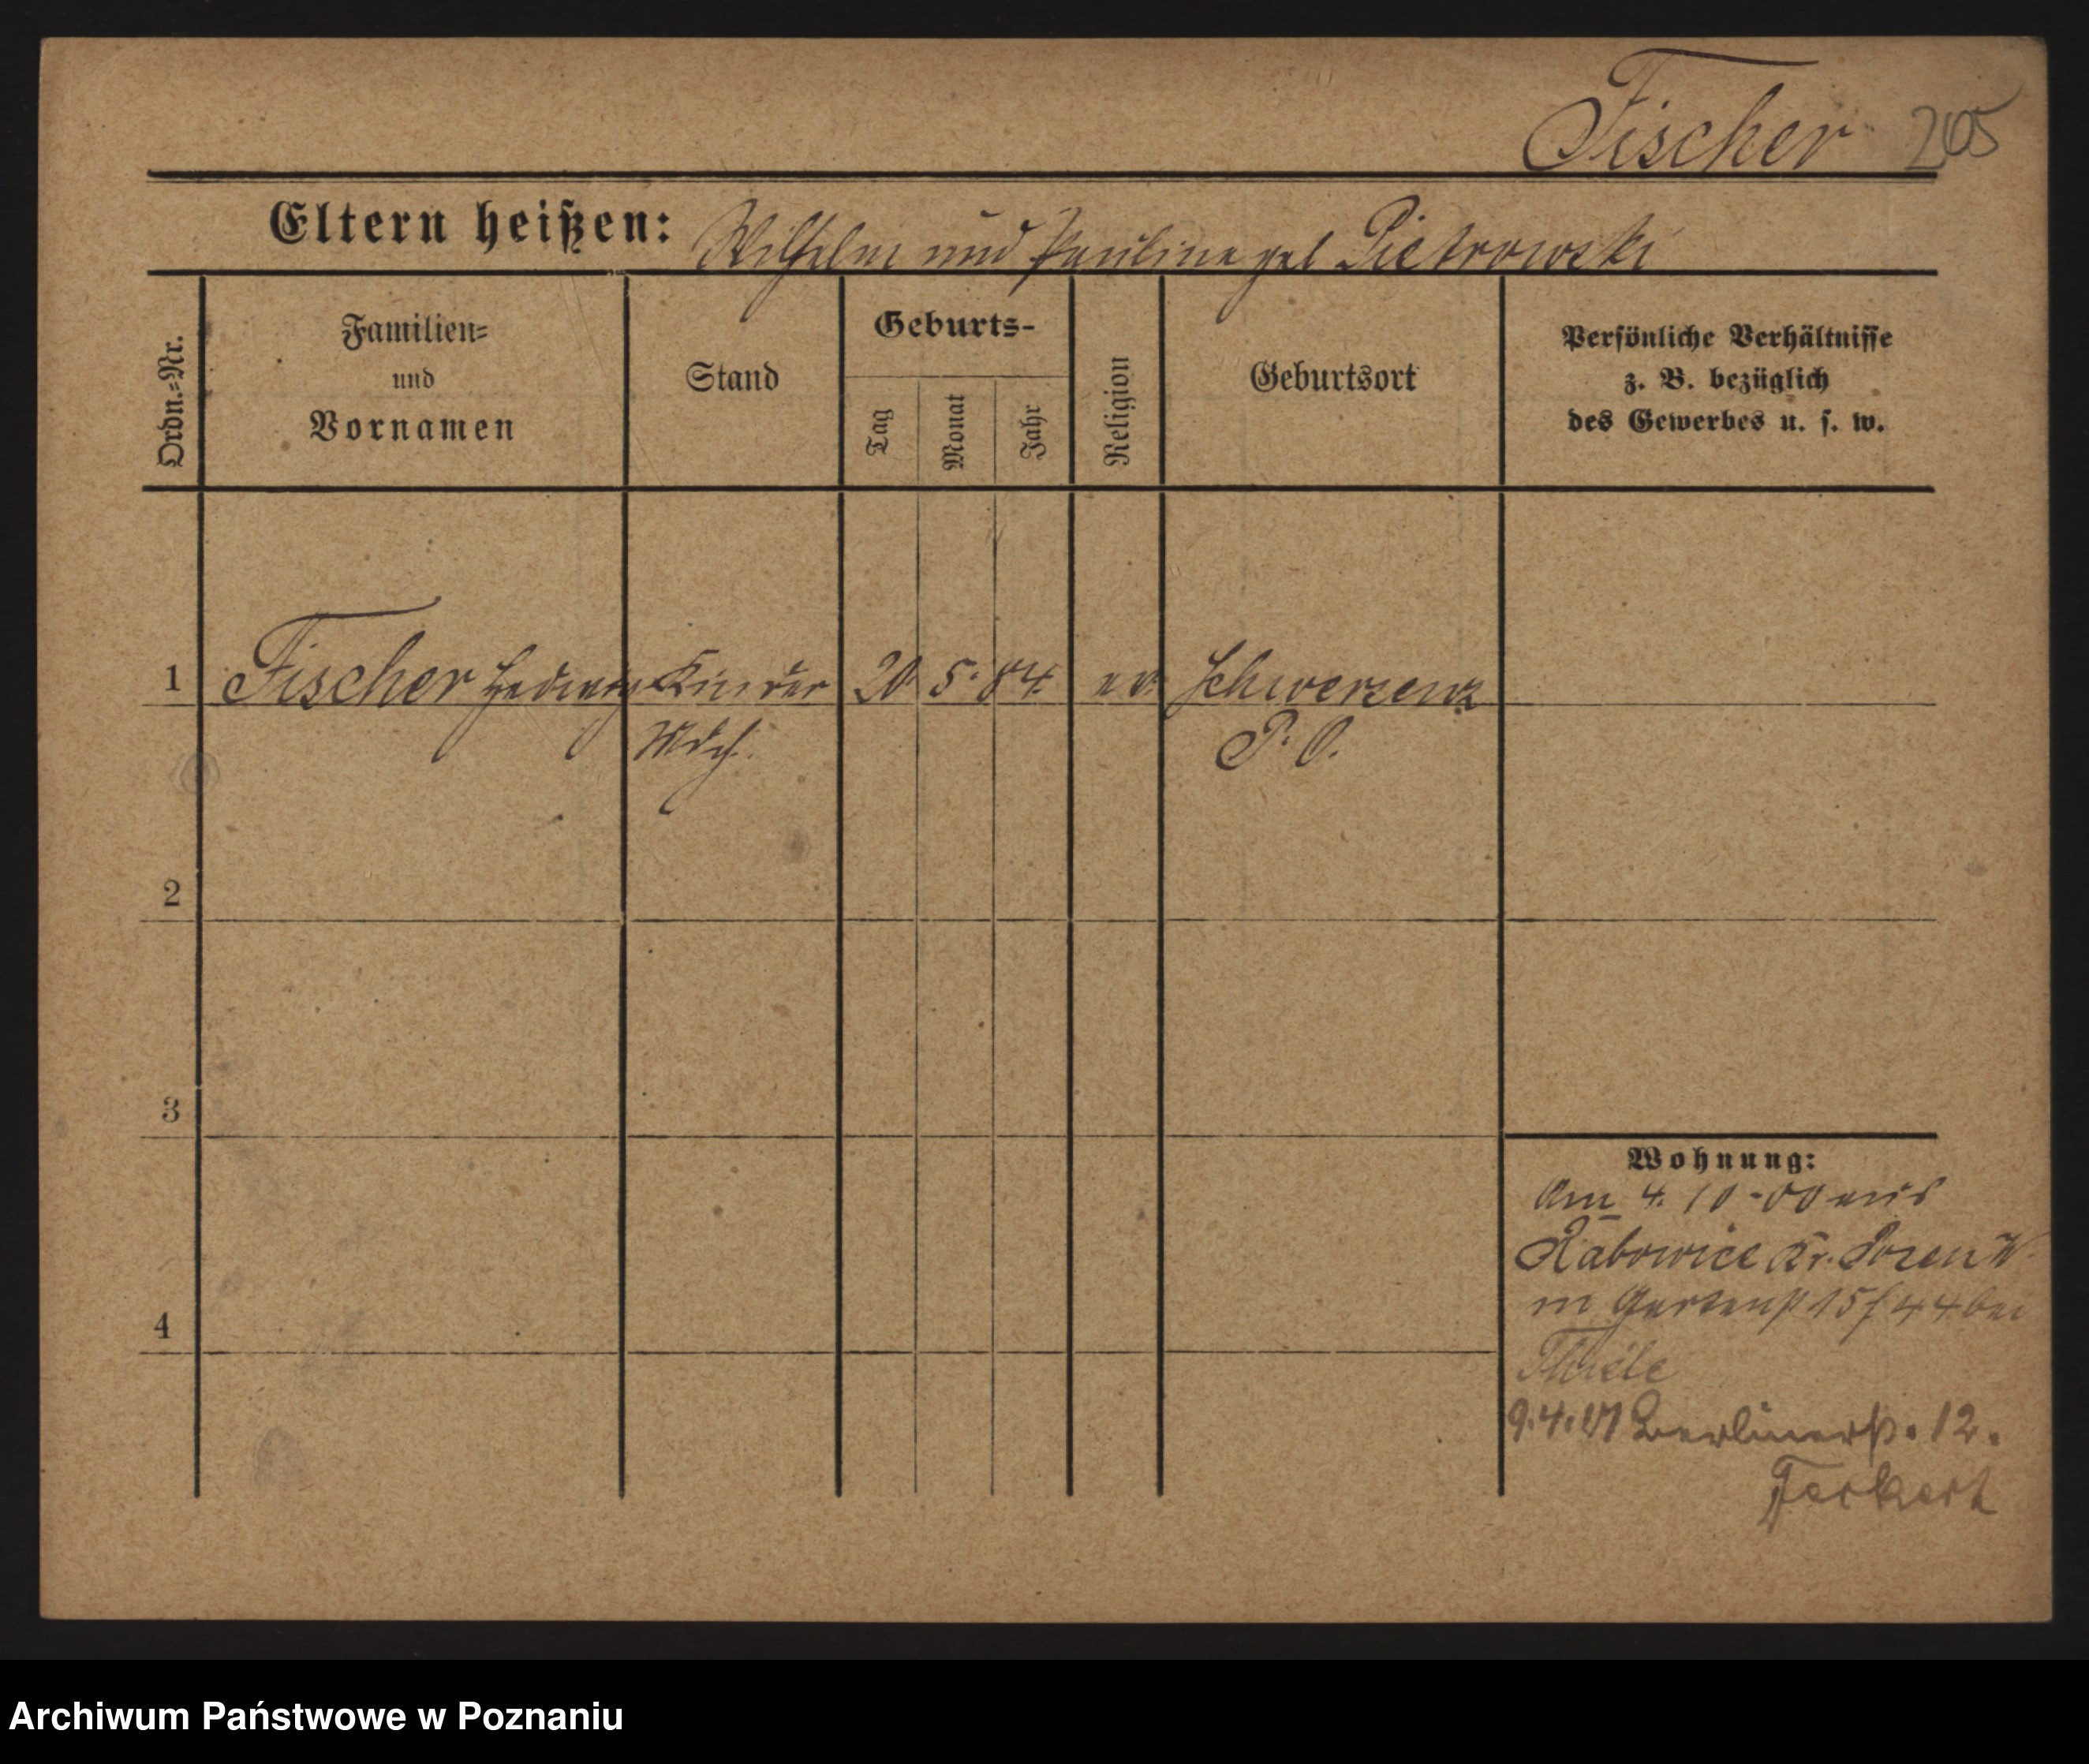 Fischer 205
Eltern heißen: Wilhelm und Pauline geb Pietrowski
Ordn.-Nr.
Familien-
und
Vornamen
Stand
Geburts-
Tag
Monat
Jahr
Religion
Geburtsort
Persönliche Verhältnisse
z. B. bezüglich
des Gewerbes u. s. w.
1 Fischer Hedwig Kinder 20. 5. 84. ev. Schwersenz
Mdch. P. O.
2
3
4
Wohnung:
Am 4. 10. 00 aus
Rabowice Kr. Posen W.
in Gartenst 15 f 44 bei
Thiele
9.4.01 Berlinerst. 12.